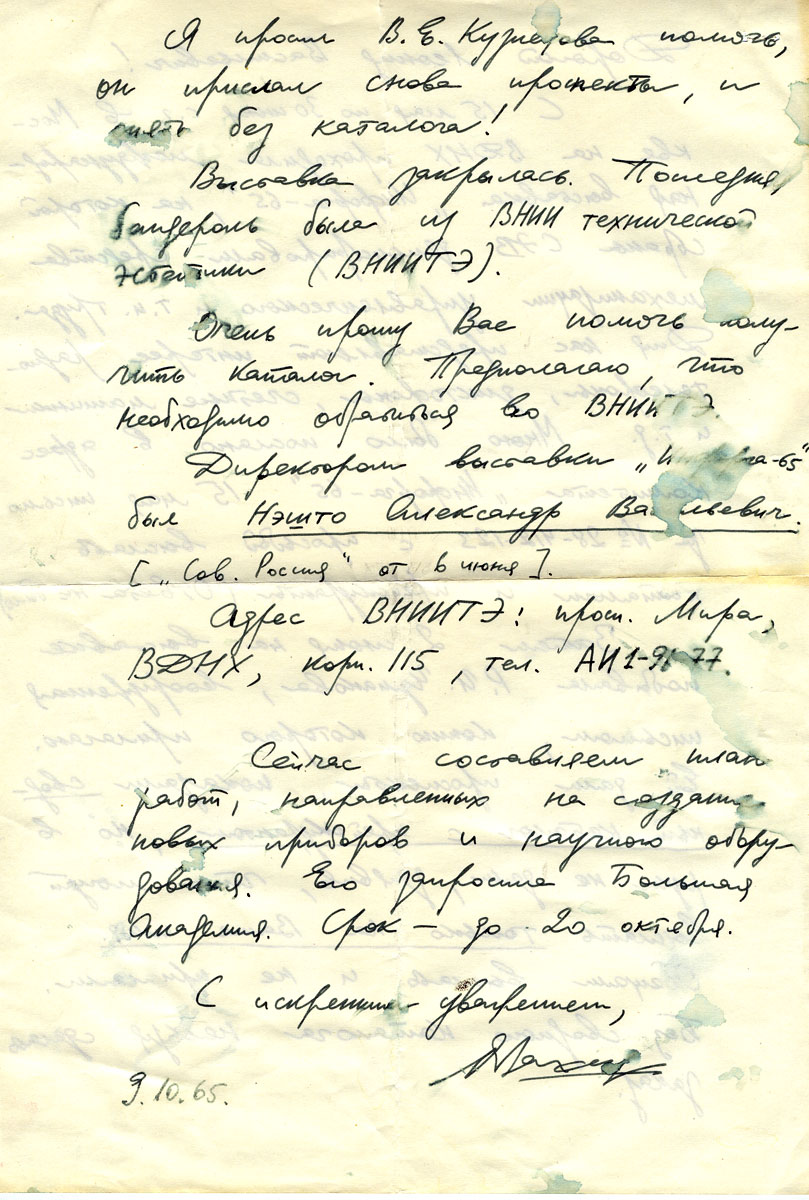 Я просил В. Е. Кузнецова помочь,
он прислал снова проспекты, и
опять без каталога!
Выставка закрылась. Последняя
бандероль была из ВНИИ технической
эстетики (ВНИИТЭ).
Очень прошу Вас помочь полу-
чить каталог. Предполагаю, что
необходимо обратиться во ВНИИТЭ.
Директором выставки „Инфорга-65"
был Нэшто Александр Васильевич.
[„Сов. Россия" от 6 июня].
Адрес ВНИИТЭ: просп. Мира,
ВДНХ, корп. 115, тел. АИ 1-91-77.
Сейчас составляем план
работ, направленных на создание
новых приборов и научного обору-
дования. Его запросила Большая
Академия. Срок — до 20 октября.
С искренним уважением,
9.10.65.